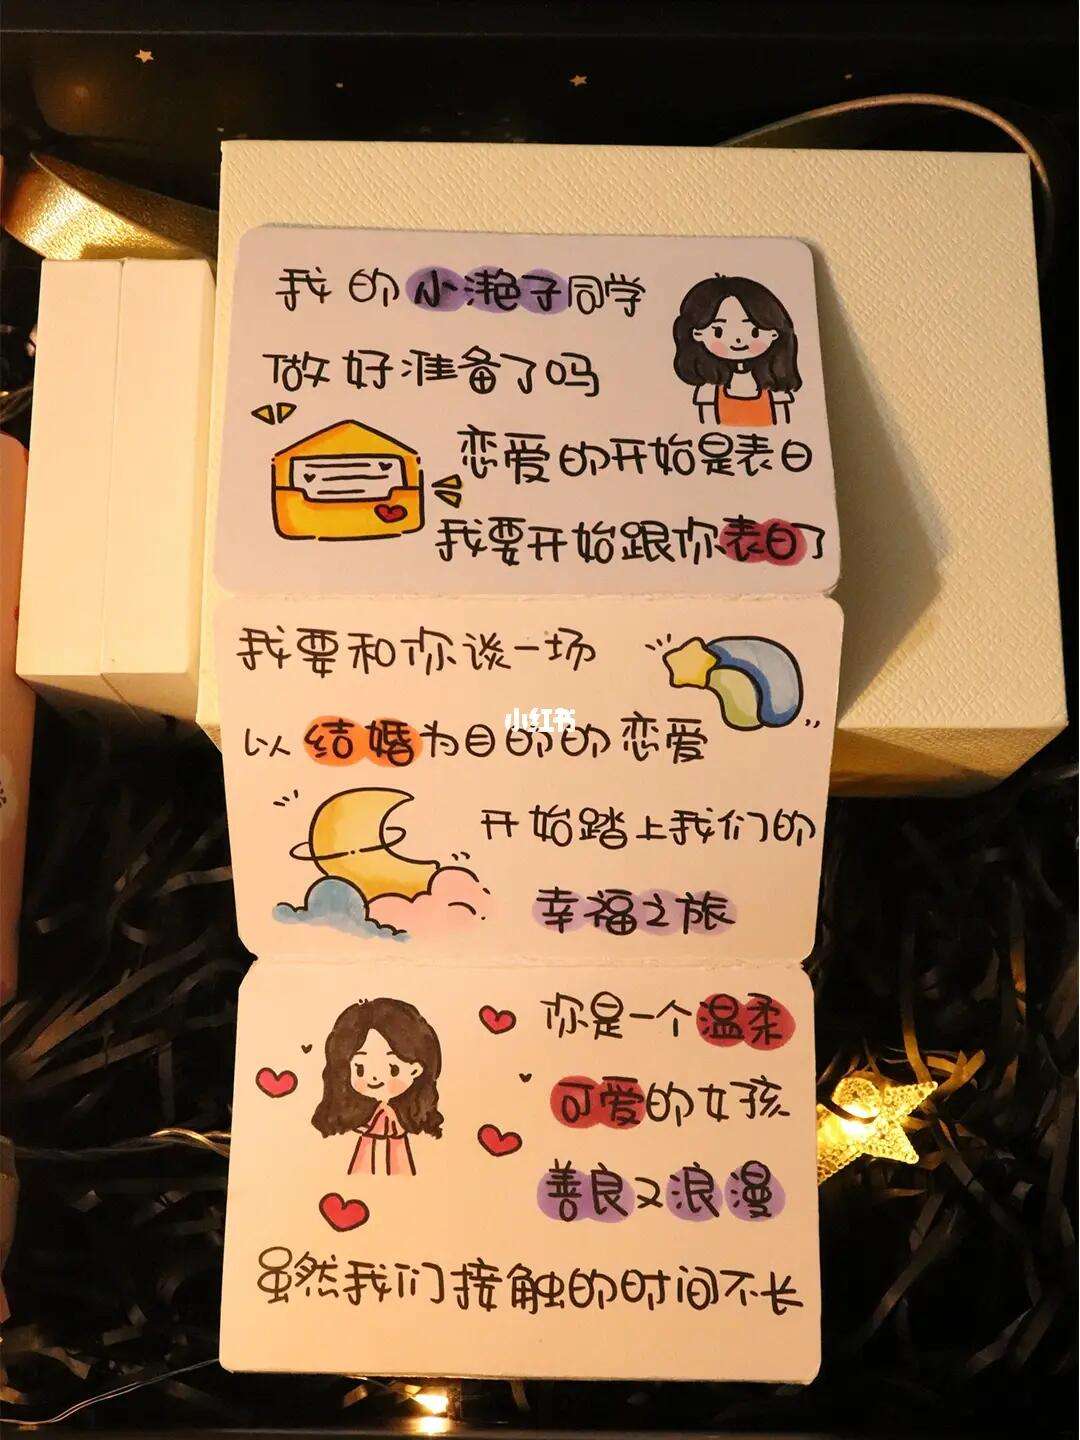 我的小滟子同学
做好准备了吗
恋爱的开始是表白
我要开始跟你表白了
我要和你谈一场
以结婚为目的的恋爱
小红书
开始踏上我们的
幸福之旅
你是一个温柔
可爱的女孩
善良又浪漫
虽然我们接触的时间不长